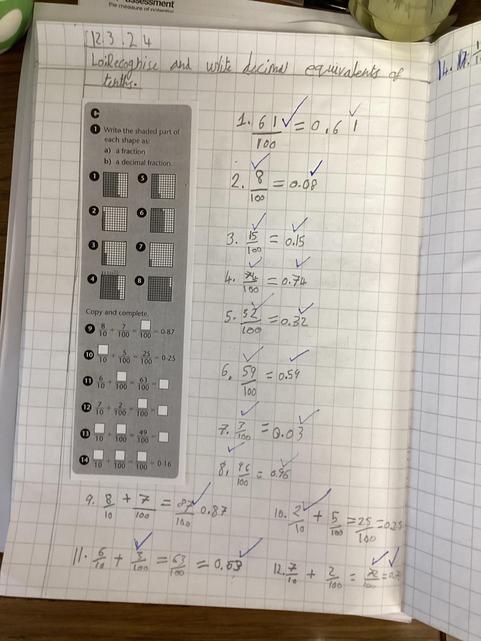 assessment
the measure of potential
12.3.24
Lo: Recognise and write decimal equivalents of
tenths.
C
1 Write the shaded part of
each shape as:
a) a fraction
b) a decimal fraction.
1 5
2 6
3 7
4 8
Copy and complete.
9 8/10 + 7/100 = /100 = 0·87
10 /10 + 5/100 = 25/100 = 0·25
11 6/10 + /100 = 63/100 =
12 7/10 + 2/100 = /100 =
13 /10 + /100 = 49/100 =
14 /10 + /100 = /100 = 0·16
1. 61/100 = 0.61
2. 8/100 = 0.08
3. 15/100 = 0.15
4. 74/100 = 0.74
5. 32/100 = 0.32
6. 59/100 = 0.59
7. 3/100 = 0.03
8. 96/100 = 0.96
9. 8/10 + 7/100 = 87/100 0.87
10. 2/10 + 5/100 = 25/100 = 0.25
11. 6/10 + 3/100 = 63/100 = 0.63
12. 7/10 + 2/100 = 72/100